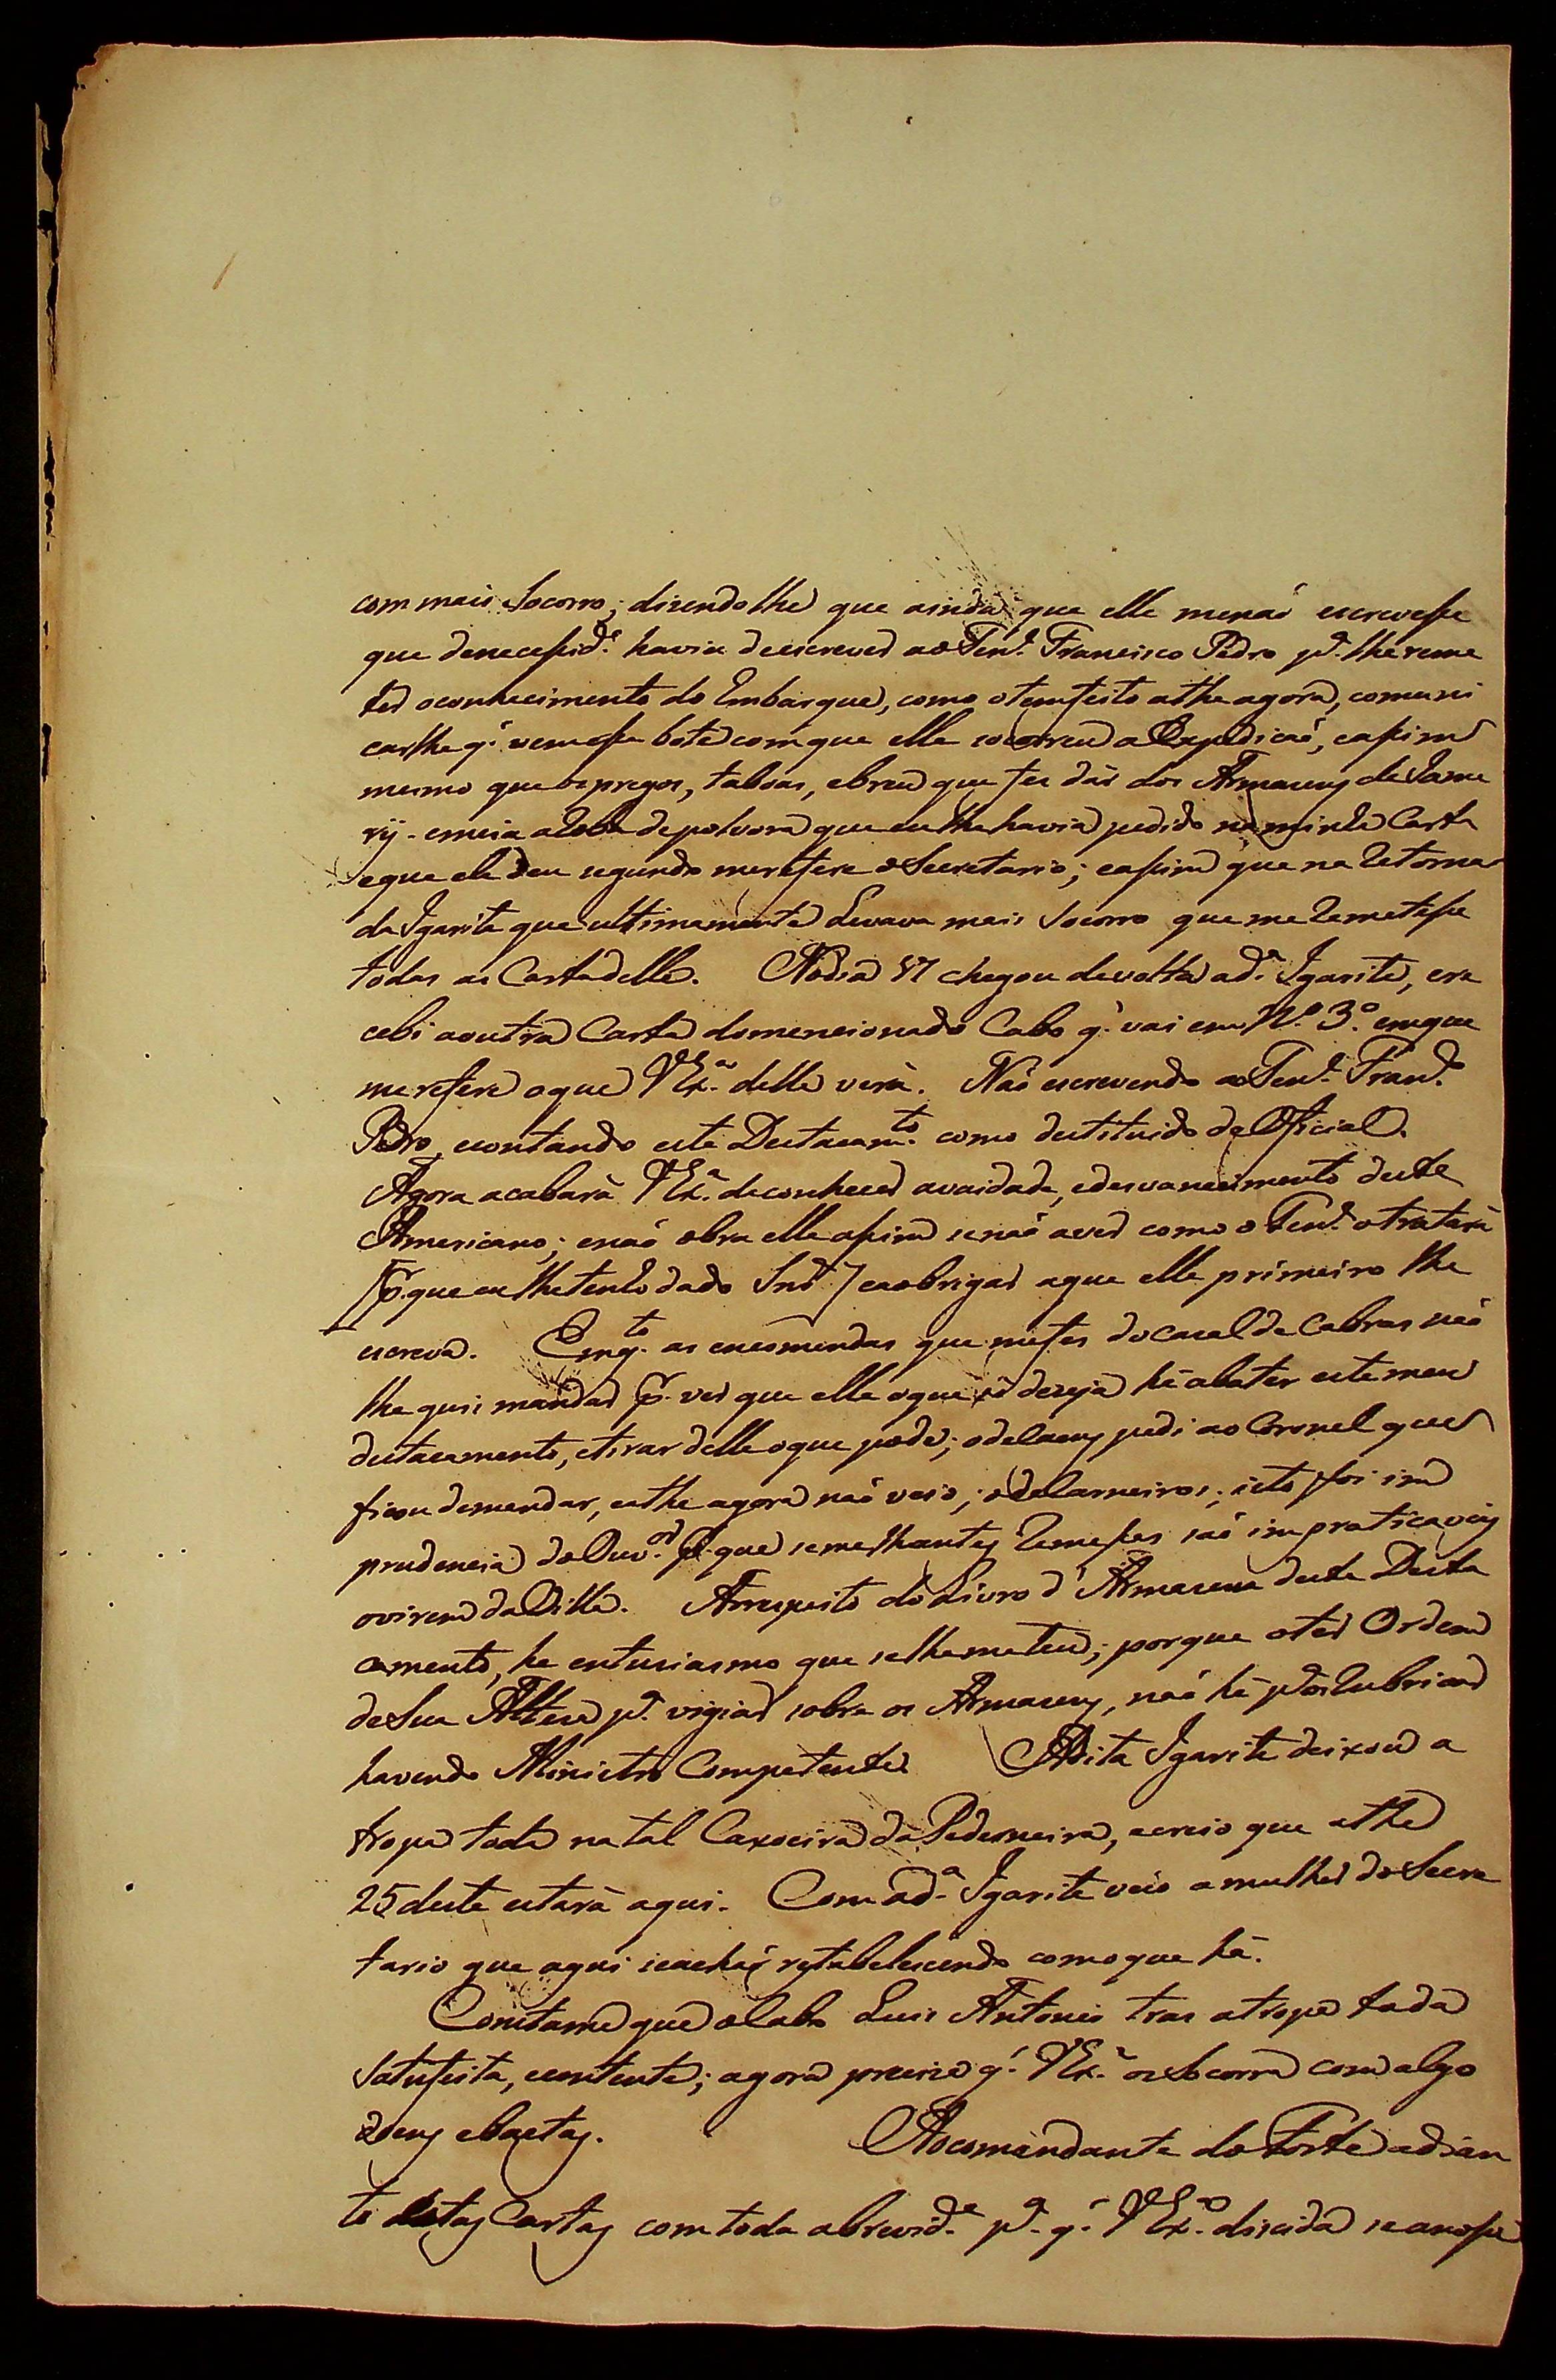 com mais Socorro; disendolhe que ainda que elle menaõ escrevese
que denecesid.e havia deescrever ao Ten.e Francisco Pedro p.a lhereme
ter oconhecimento do Embarque, como otemfeito athe agora, comuni
carlhe q.' vemose bote comque elle socorreu a Expediçaõ, easim
mesmo que os pregos, taboas, ebreu que fes dàr dos Armazeny de Jame
ry - emeia aroba depolvora que eu lhe havia pedido na minha Carta
eque ele deu segundo merefere oSecretario; easim que na Retorna
da Igarite que ultimamente Levava mais Socorro que me Remetese
todas as Cartadelle. Nodia 17 chegou devolta ad.a Igarite, ere
cebi aoutra Carta domencionado Cabo q.' vai em N.o 3.o emque
merefere oque VEx.a della verà. Naõ escrevendo ao Ten.e Fran.co
Pedro, econtando este Destacam.to como destituido de Oficial.
Agora acabarà VEx.a deconhecer avaidade, edesvanecimento deste
Americano; enaõ obra elle asim senaõ aver como o Ten.e otratarà
[p.r que eu lhetenho dado Ins.] eaobrigar aque elle primeiro lhe
escreva. Emq.to as encomendas que mefes docasal de Cabras naõ
lhe quis mandar p.r ver que elle oque só deseja hè abater este meu
destacamento, etirar delle oque pode; odelaeny pedi ao Coronel que
ficou demandar, eathe agora naõ veio; odeCarneiros; isto foi im
prudencia do Ouv.or p.r que semelhantes Remesas saõ impraticaveis
ovirem da Villa. Arrespeito do Livro d'Armazem deste Desta
camento, he entusiasmo que selhemeteu; porque oter Ordem
de Sua Alteza p.a vigiar sobre os Armazeny, naõ hè p.a os Rubricar
havendo Ministro Competente. Adita Igarite deixou a
tropa toda na tal Caxoeira da Pederneira, ecreio que athe
25 deste estarà aqui. Com ad.a Igarite veio amulher do Secre
tario que aqui seacha restabelescendo comoque hà.
Constame que oCabo Luis Antonio tras atropa toda
satisfeita, econtente; agora precizo q.' VEx.a os Socorra com algo
doeny ebaetas. Aocomandante do Forte adian
te destas Cartas com toda abrevid.e p.a q.' VEx.a discida seanosa